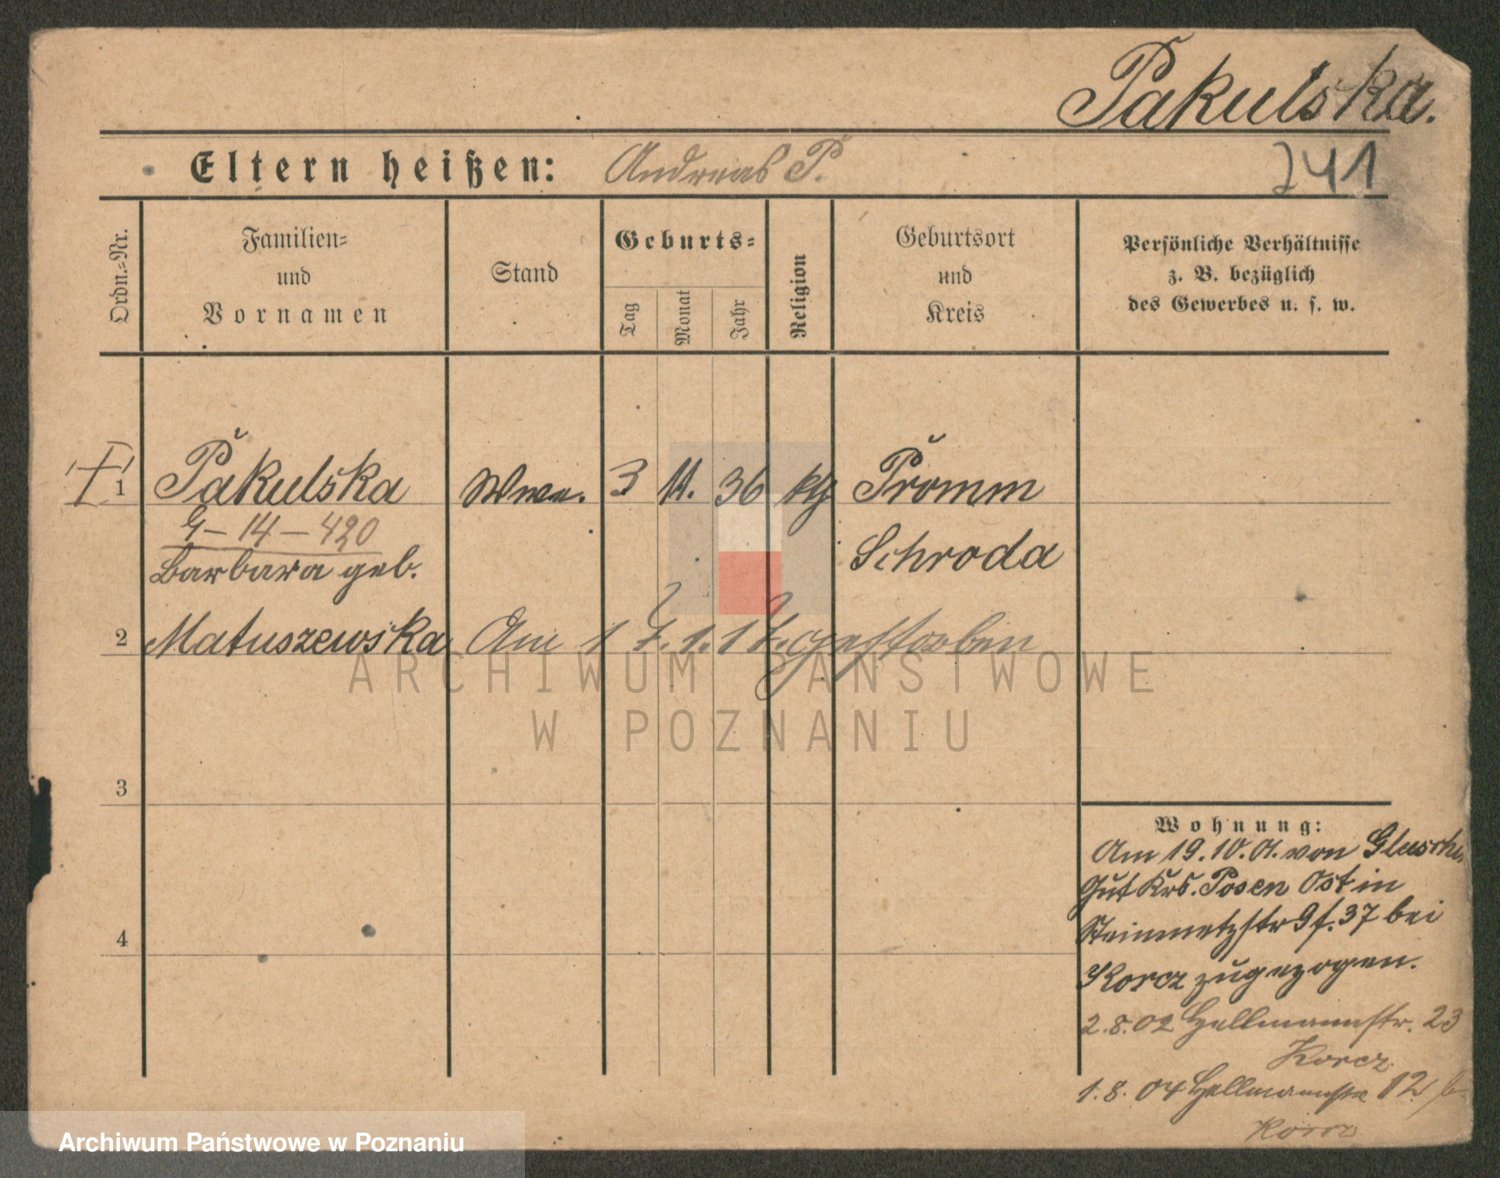 Pakulska.
Eltern heißen: Andreas P.
241
Ordn.-Nr.
Familien-
und
Vornamen
Stand
Geburts-
Tag
Monat
Jahr
Religion
Geburtsort
und
Kreis
Persönliche Verhältnisse
z. B. bezüglich
des Gewerbes u. s. w.
1 Pakulska Wwe. 3 11. 36 kg Promm
G-14-420
Barbara geb. Schroda
2 Matuszewska Am 17.1.17. gestorben
ARCHIWUM PAŃSTWOWE
W POZNANIU
3
4
Wohnung:
Am 19.10.01. von
Gut Krs. Posen Ost in
Steinmetzstr 9 f. 37 bei
Korcz zugezogen.
2.8.02 Hellmannstr. 23
Korcz
1.8.04 Hellmannstr 12
Korcz
Archiwum Państwowe w Poznaniu